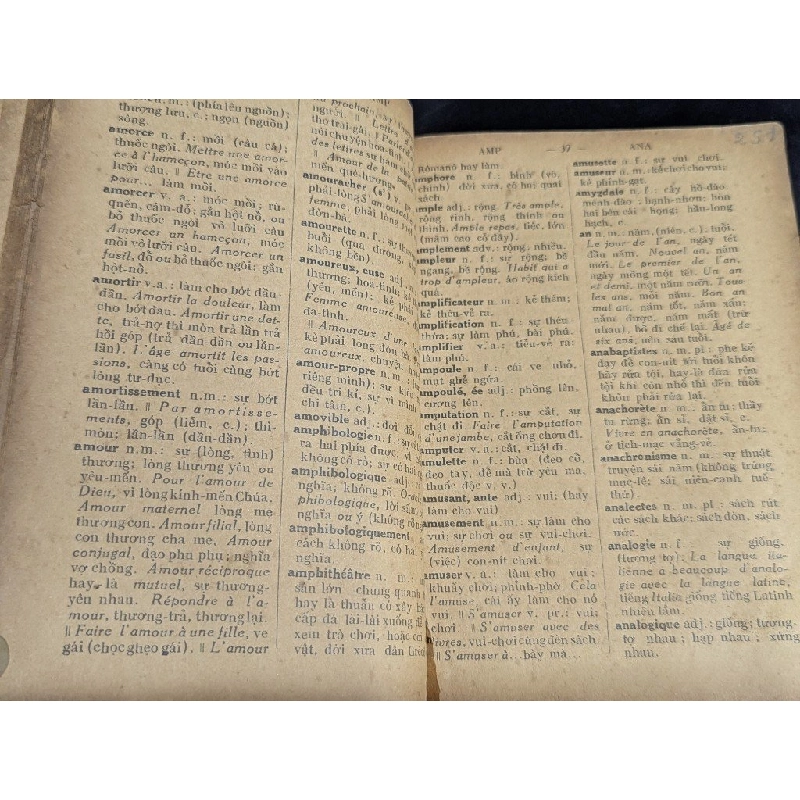 n. m.: (phía lên nguồn);
thượng lưu, c.; ngọn (nguồn)
sông.
amorce n. f.: mồi (câu cá);
thuốc ngòi. Mettre une amor-
ce à l'hameçon, móc mồi vào
lưỡi câu. ‖ Etre une amorce
pour... làm mồi.
amorcer v. a.: móc mồi; rù-
quến, cám-dỗ; gắn hột nổ, ou
bỏ thuốc ngòi
Amorcer un hameçon, móc
mồi vô lưỡi câu. Amorcer un
fusil, đổ ou bỏ thuốc ngòi; gắn
hột-nổ.
amortir v.a.: làm cho bớt dần-
dần. Amortir la douleur, làm
cho bớt đau. Amortir une det-
te, trả-nợ thì mòn trả lần trả
hồi góp (trả dần dần ou lần-
lần). L'âge amortit les pas-
sions, càng có tuổi càng bớt
lòng tư-dục.
amortissement n.m.: sự bớt
lần-lần. ‖ Par amortisse-
ments, góp (tiền, c.); thì-
mòn; lần-lần (dần-dần).
amour n.m.: sự (lòng, tình)
thương; lòng thương yêu ou
yêu-mến. Pour l'amour de
Dieu, vì lòng kính-mến Chúa.
Amour maternel lòng mẹ
thương con. Amour filial, lòng
con thương cha mẹ. Amour
conjugal, đạo phu phụ; nghĩa
vợ chồng. Amour réciproque
hay là mutuel, sự thương-
yêu nhau. Répondre à l'a-
mour, thương-trả, thương lại.
‖ Faire l'amour à une fille, ve
gái (chọc ghẹo gái). ‖ L'amour
AMP
du prochain,
người. ‖ Lettres
thơ trai-gái.
nói chuyện hoa-tình.
des lettres sự ham
‖ Amour de la
mến quê-hương.
amouracher (s') v.
phải-lòng
femme, phải lòng
đờn-bà.
amourette n. f.: sự
buổi (qua đường,
không bền).
amoureux, euse adj.:
thương; hoa-tình;
(yêu, mến);
Femme amoureuse
đa-tình.
‖ Amoureux d'une
kẻ phải lòng đờn bà
amoureux, chuyện
amour-propre n. m.:
riêng mình);
đều trí-kỉ, sự vì mình
chi tâm, c.).
amovible adj.: đời đổi
amphibologie n. f.: sự
ra hai phía được,
không rõ; sự có hai
amphibologique adj.:
nghĩa; không rõ.
phibologique, lời
nghĩa ou ý (không rõ
amphibologiquement
cách không rõ, có hai
nghĩa.
amphithéâtre n. m.:
sắn lớn chung quanh
hay là thuần có xây
cấp đá lài-lài xuống
xem trò chơi, hoặc
vật, đời xưa dân
AMP — 37 — ANA
Romano hay làm.
amphore n. f.: bình (vò,
chỉnh) đời xưa, có hai quai
xách
ample adj.: rộng. Très ample,
rộng rinh, rộng thinh ou
thinh. Ample repas, tiệc lớn
(mâm cao cỗ đầy).
amplement adv.: rộng, nhiều.
ampleur n. f.: sự rộng; bề
ngang, bề rộng. Habit qui a
trop d'ampleur, áo rộng kích
quá.
amplificateur n. m.: kẻ thêm;
kẻ thêu-vẽ ra.
amplification n. f.: sự thêu-
thừa; sự làm phú, bài phú.
amplifier v.a.: thêu-vẽ ra;
làm phú.
ampoule n. f.: cái ve nhỏ,
mụt giề ngứa.
ampoulé, ée adj.: phồng lên,
cương lên.
amputation n. f.: sự cắt, sự
chặt đi Faire l'amputation
d'une jambe, cắt ống chơn đi.
amputer v. a.: cắt, chặt đi.
amulette n. f.: bùa (đeo cổ,
đeo tay, để mà trừ yêu ma,
thuốc độc v. v.)
amusant, ante adj.: vui; (hay
làm cho vui)
amusement n. m.: sự làm cho
vui; sự chơi ou sự vui-chơi.
Amusement d'enfant, sự
(việc) con-nít chơi.
amuser v. a.: làm cho vui;
khuấy chơi; phỉnh-phờ. Cela
l'amuse, cái ấy làm cho nó
vui. ‖ S'amuser v. pr.: vui;
chơi. ‖ S'amuser avec des
livres, vui-chơi cùng đèn sách
‖ S'amuser à.. bày mà...
amusette n. f.: sự vui chơi.
amuseur n. m.: kẻ chơi cho vui;
kẻ phỉnh-gạt.
amygdale n. f.: cây hồ-đào
mảnh đào: hạnh-nhơn; hòn
hai bên cái họng; hầu-long
hạch, c.
an n. m.: năm, (niên, c.), tuổi.
Le jour de l'an, ngày tết
đầu năm. Nouvel an, năm
mới. Le premier de l'an,
ngày mồng một tết. Un an
et demi, một năm rưỡi. Tous
les ans, mỗi năm. Bon an
mal an, năm tốt, năm xấu;
năm được, năm mất (trừ
nhau), bỏ đi chế lại. Agé de
six ans, nên sáu tuổi.
anabaptistes n. m. pl: phe kẻ
dạy để con-nít tới tuổi khôn
hãy rửa tội, hay-là đàn rửa
tội khi còn nhỏ thì đến tuổi
khôn phải rửa lại.
anachorète n. m.: ẩn tu; thầy
tu rừng; ẩn sĩ, dật sĩ, c.
Vivre en anachorète, ẩn-tu;
ở tịch-mịch vắng-vẻ.
anachronisme n. m.: sự thuật
truyện sái năm (không trúng
mục-lê; sái niên-canh tuế-
thứ).
analectes n. m. pl: sách rút
các sách khác; sách dồn, sách
nóc.
analogie n. f. sự giống,
(tương tợ). La langue ita-
lienne a beaucoup d'analo-
gie avec la langue latine,
tiếng Italia giống tiếng Latinh
nhiều lắm.
analogique adj.: giống; tương-
tợ nhau; hạp nhau; xứng
nhau.